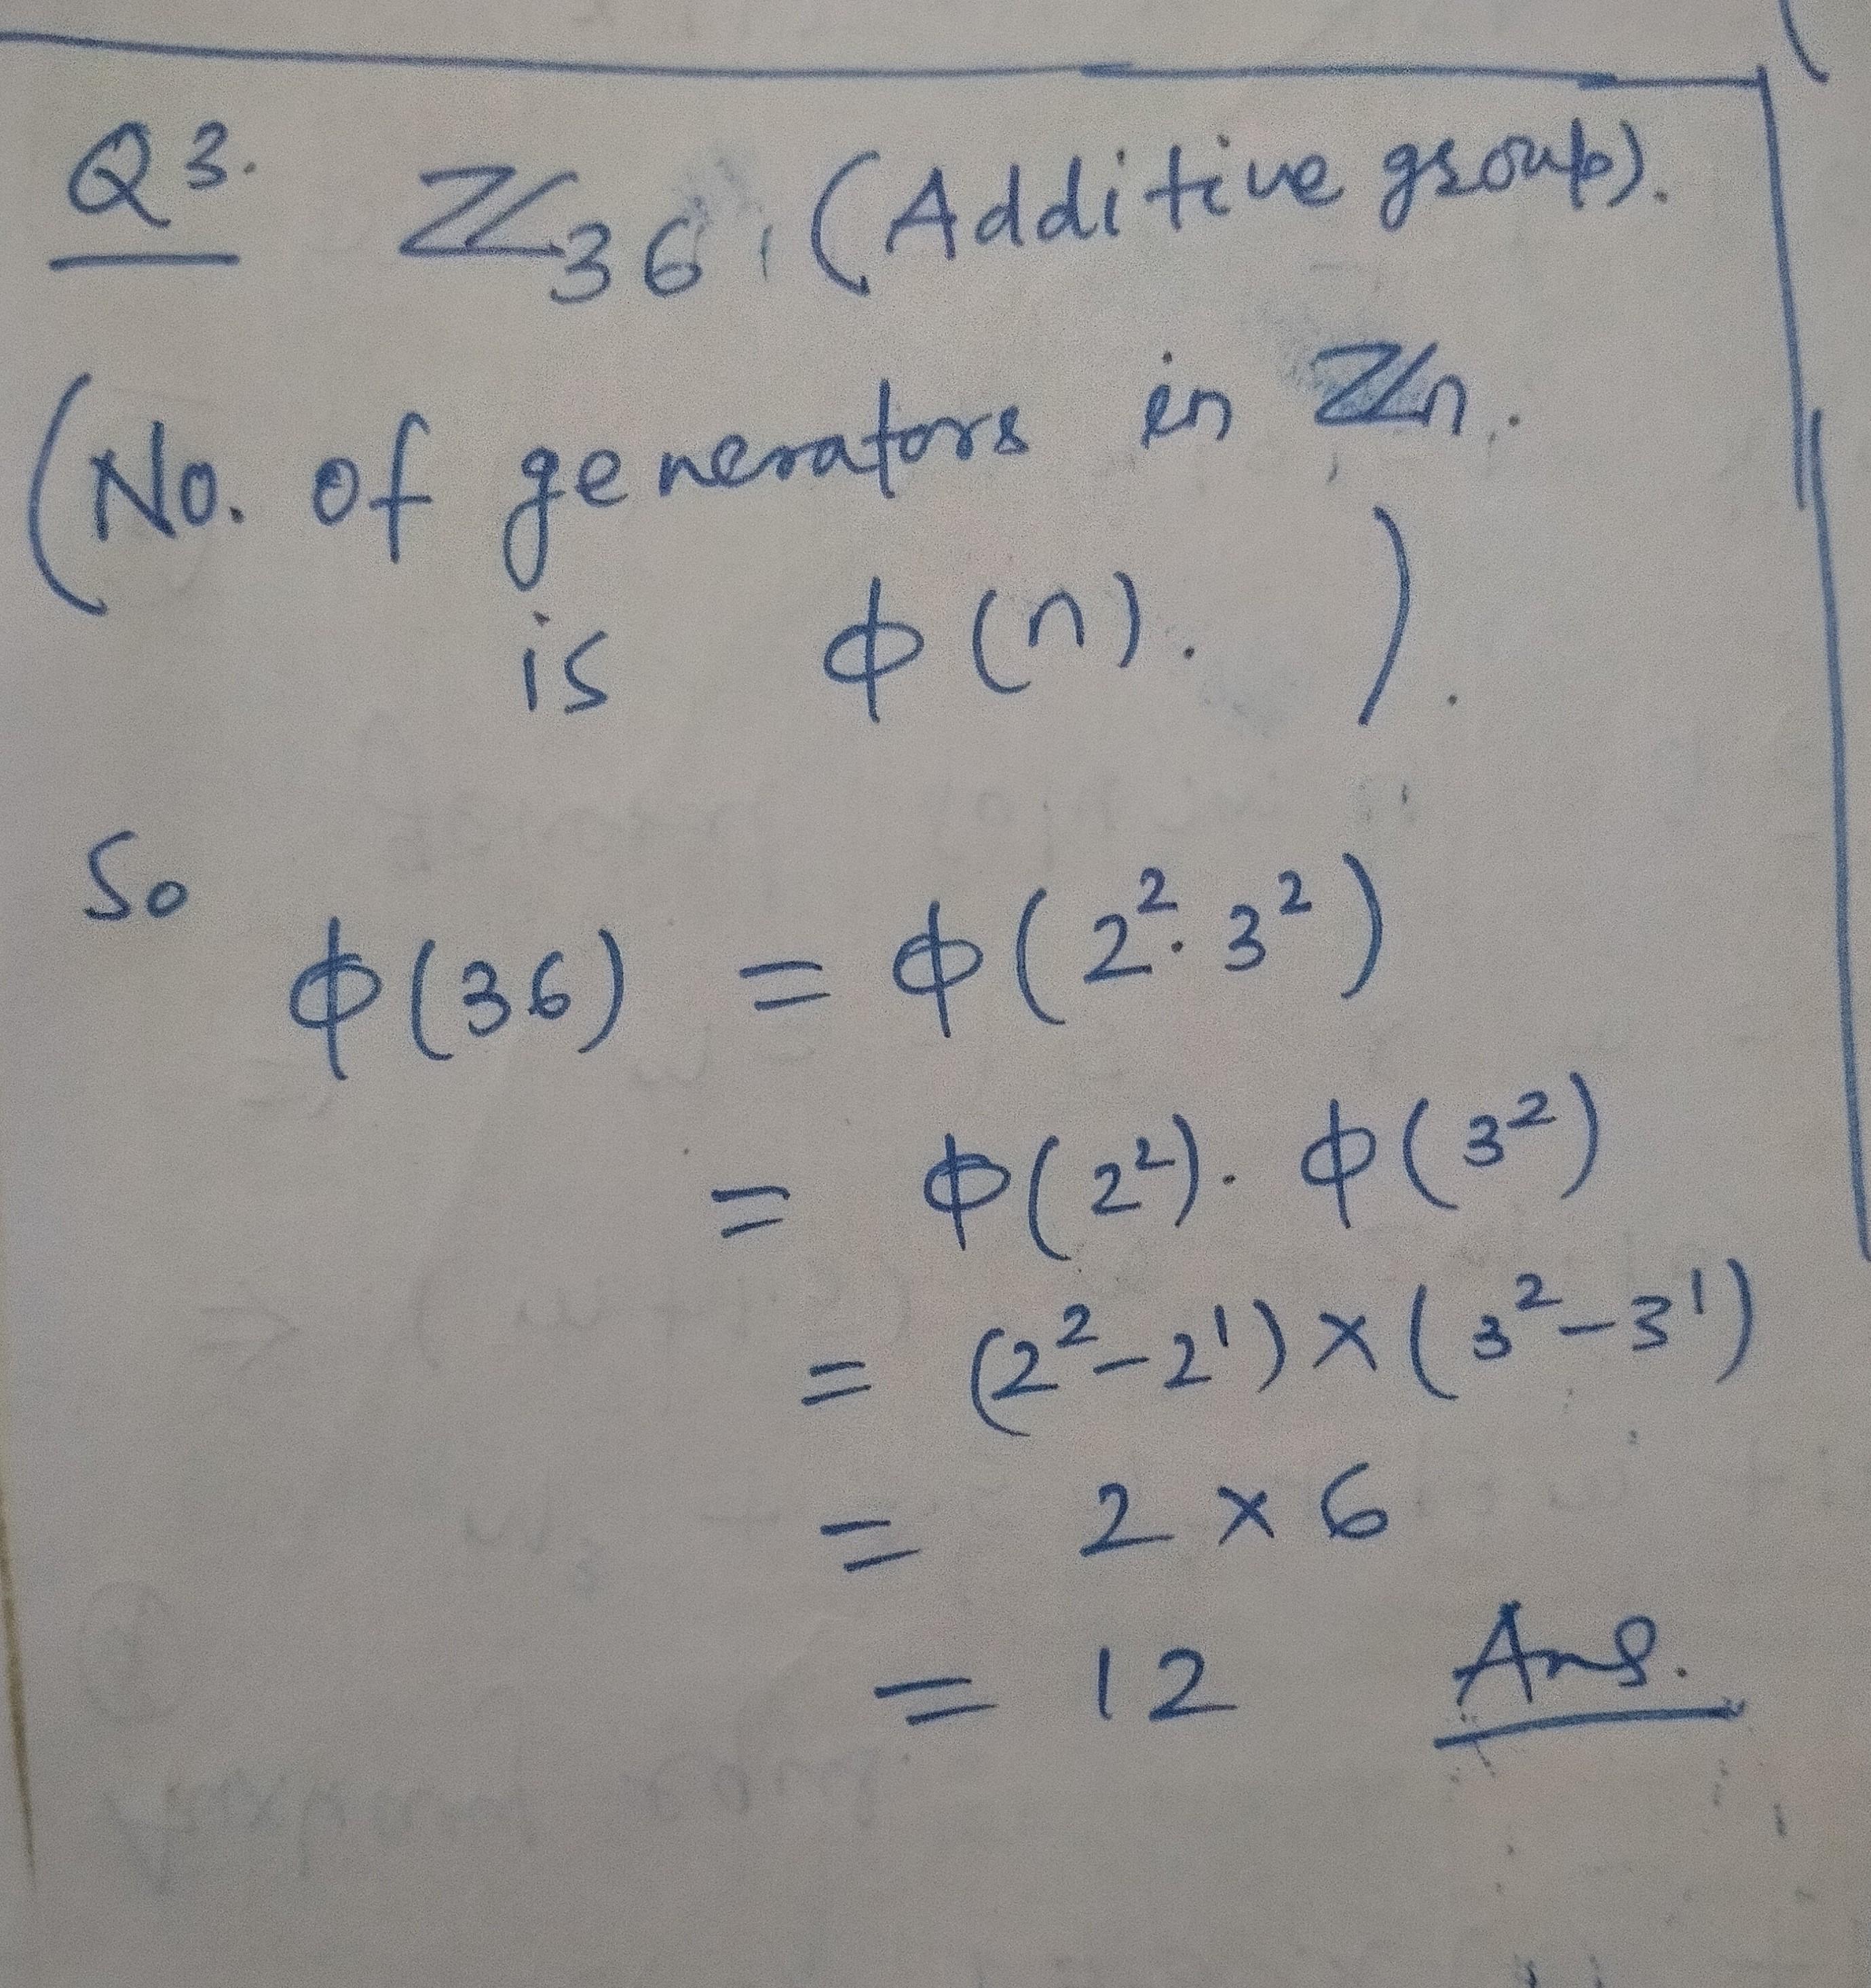 Q3. ℤ₃₆, (Additive group).
(No. of generators in ℤn.
is ϕ(n). ).
So
ϕ(36) = ϕ(2².3²)
= ϕ(2²). ϕ(3²)
= (2²-2¹)×(3²-3¹)
= 2 × 6
= 12 Ans.